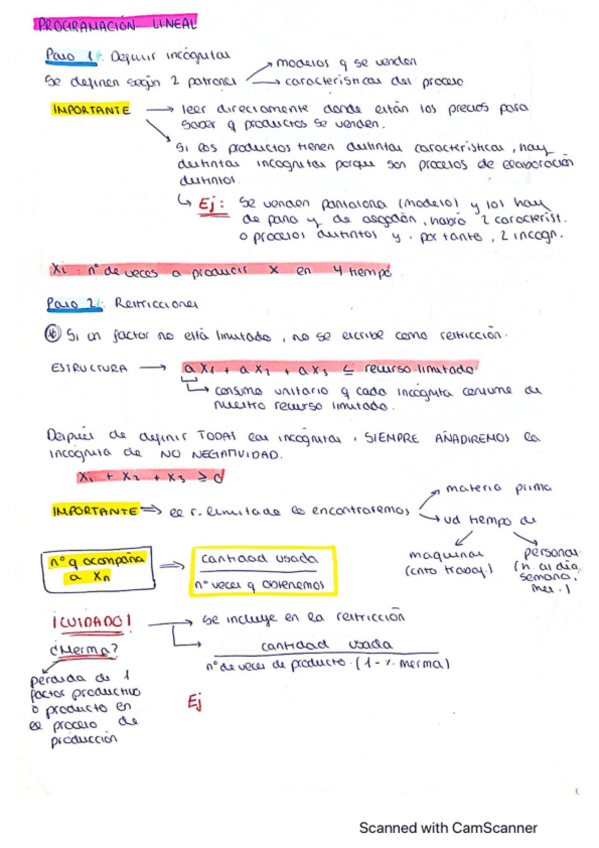 PROGRAMACIÓN LINEAL
Paso 1: Definir incógnitas
→ modelos q se venden
Se definen según 2 patrones → características del proceso
IMPORTANTE → leer directamente donde están los precios para
saber q productos se venden.
Si los productos tienen distintas características, hay
distintas incognitas porque son procesos de elaboración
distintos.
↳ Ej: Se venden pantalona (modelo) y los hay
de pana y de algodón, habrá 2 caracterist.
o procesos distintos y, por tanto, 2 incogn.
Xi: nº de veces a producir X en Y tiempo
Paso 2: Restricciones
Si un factor no está limitado, no se escribe como restricción.
ESTRUCTURA → aX1 + aX2 + aX3 ≤ recurso limitado
↳ consumo unitario q cada incógnita consume de
nuestro recurso limitado.
Después de definir TODAS las incógnitas, SIEMPRE AÑADIREMOS la
incógnita de NO NEGATIVIDAD.
X1 + X2 + X3 ≥ 0
→ materia prima
IMPORTANTE ⇒ el r. limitado lo encontraremos → ud tiempo de
maquinas
(cnto trabaj.)
personas
(h. al día,
semana,
mes.)
nº q acompaña
a Xn
⇒ cantidad usada
nº veces q obtenemos
¡CUIDADO! → se incluye en la restricción
¿Merma? ↳ cantidad usada
nº de veces de producto · (1 - % merma)
pérdida de 1
factor productivo
o producto en
el proceso de
producción
Ej
Scanned with CamScanner